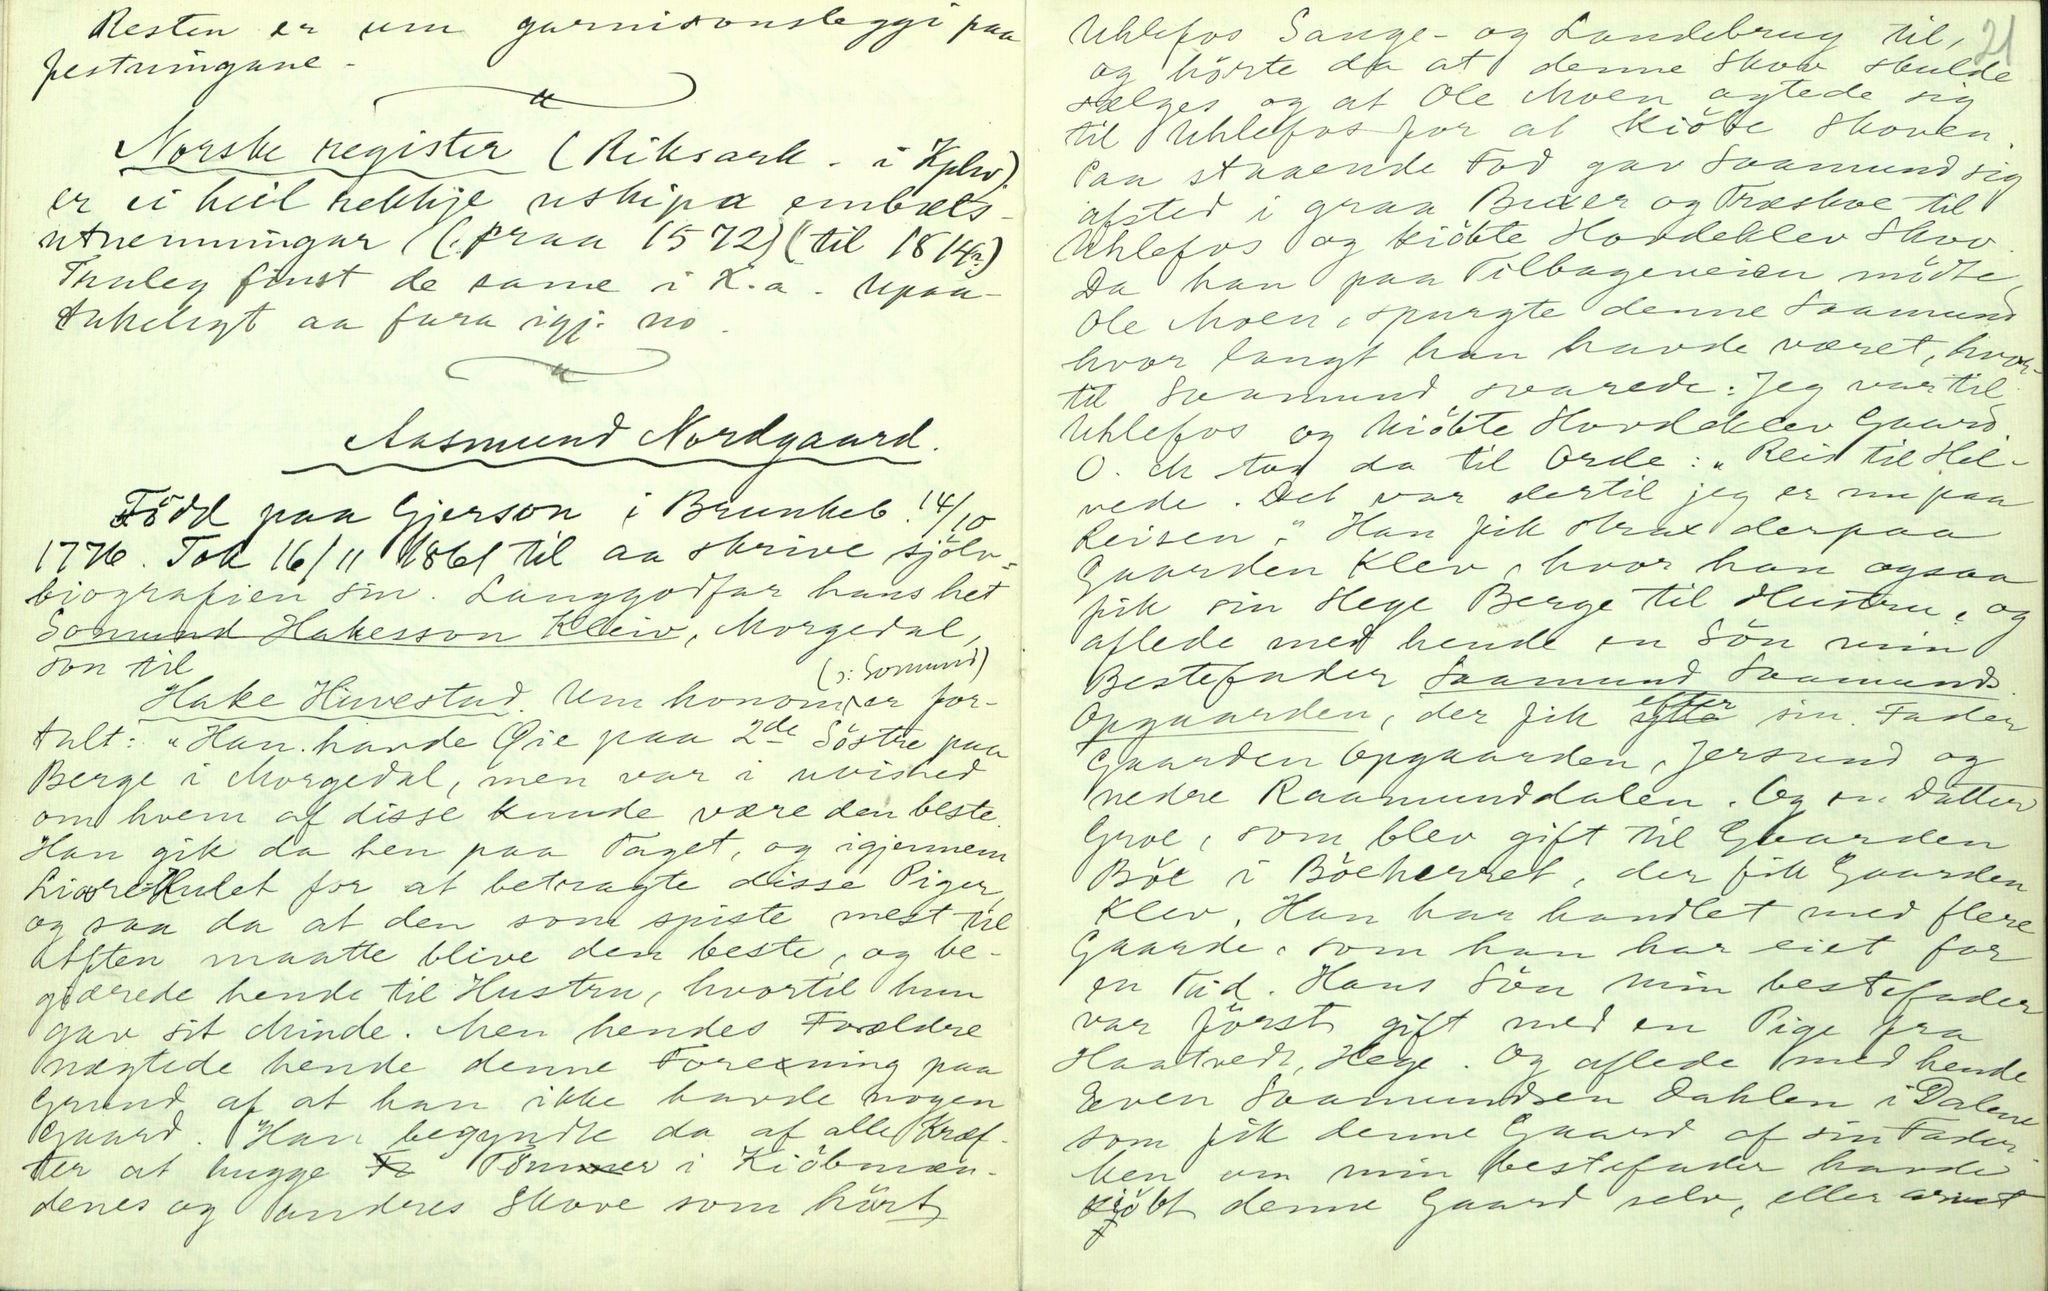 Resten er um garnisonsleggi paa
festningane.
Norske register (Riksark. i Kphv).
er ei heil rekkje uskipa embæts-
utnemningar (fraa 1572) (til 1814?)
Truleg finst de same i R.a. Upaa-
tukelegt aa fara igj. no.
Aasmund Nordgaard.
Född paa Gjerson i Brunkeb. 14/10
1776. Tok 16/11 1861 til aa skrive sjölv-
biografien sin. Langgodfar hans het
Somund Hakesson Kleiv, Morgedal,
son til
(ɔ: Somund)
Hake Hinvestad. Um honom er for-
talt: "Han havde Øie paa 2de Söstre paa
Berge i Morgedal, men var i uvished
om hvem af disse kunde være den beste.
Han gik da hen paa Taget, og igjennem
Liorehulet for at betragte disse Piger,
og saa da at den som spiste mest til
Aften maatte blive den beste, og be-
gjærede hende til Hustru, hvortil hun
gav sit Minde. Men hendes Forældre
nægtede hende denne Forening paa
Grund af at han ikke havde nogen
Gaard. Han begyndte da af alle Kræf-
ter at hugge Tömmer i Kiöbmæn-
denes og anderes Skove som hört
21
Uhlefos Sauge- og Landebrug til,
og hörte da at denne Skov skulde
sælges og at Ole Moen agtede sig
til Uhlefos for at kiöbe Skoven.
Paa staaende Fod gav Saamund sig
afsted i graa Buxer og Træskoe til
Uhlefos og kiöbte Hovdeklev Skov.
Da han paa Tilbageveien mödte
Ole Moen, spurgte denne Saamund
hvor langt han havde været, hvor-
til Saamund svarede: Jeg var til
Uhlefos og kiöbte Hovdeklev Gaard.
O. M tog da til Orde: "Reis til Hel-
vede. Det var dertil jeg er nu paa
Reisen." Han fik strax derpaa
Gaarden Klev, hvor han ogsaa
fik sin Hege Berge til Hustru, og
aflede med hende en Sön min
Bestefader Saamund Saamunds.
Opgaarden, der fik efter sin Fader
Gaarden Opgaarden, Jersund og
nedre Raamunddalen. Og en Datter
Groe, som blev gift til Gaarden
Böe i Böeherret, der fik Gaarden
Klev. Han har handlet med flere
Gaarde, som han har eiet for
en Tiid. Hans Sön min bestefader
var först gift med en Pige fra
Haatvedt, Hege. Og aflede med hende
Even Saamundsen Dahlen i Dalene
som fik denne Gaard af sin Fader.
Men om min bestefader havde
kiöbt denne Gaard selv, eller arvet